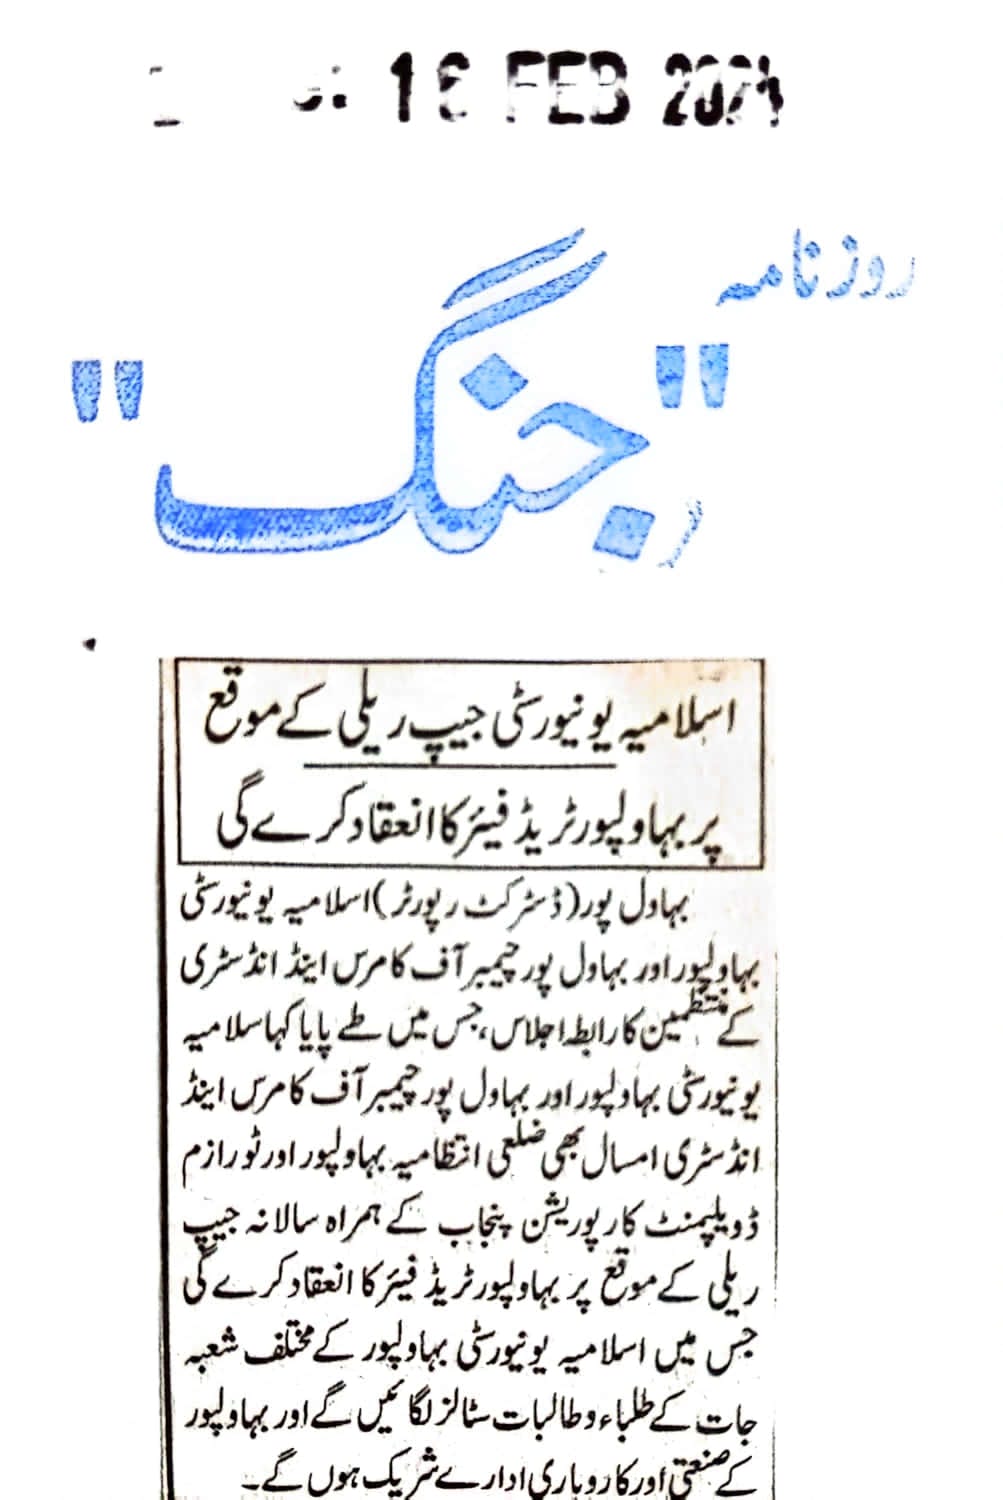 16 FEB 2024
روزنامہ
"جنگ"
اسلامیہ یونیورسٹی جیپ ریلی کے موقع
پر بہاولپور ٹریڈ فیئر کا انعقاد کرے گی
بہاول پور (ڈسٹرکٹ رپورٹر) اسلامیہ یونیورسٹی
بہاولپور اور بہاول پور چیمبر آف کامرس اینڈ انڈسٹری
کے منتظمین کا رابطہ اجلاس، جس میں طے پایا کہ اسلامیہ
یونیورسٹی بہاولپور اور بہاول پور چیمبر آف کامرس اینڈ
انڈسٹری امسال بھی ضلعی انتظامیہ بہاولپور اور ٹورازم
ڈویلپمنٹ کارپوریشن پنجاب کے ہمراہ سالانہ جیپ
ریلی کے موقع پر بہاولپور ٹریڈ فیئر کا انعقاد کرے گی
جس میں اسلامیہ یونیورسٹی بہاولپور کے مختلف شعبہ
جات کے طلباء و طالبات سٹالز لگائیں گے اور بہاولپور
کے صنعتی اور کاروباری ادارے شریک ہوں گے۔